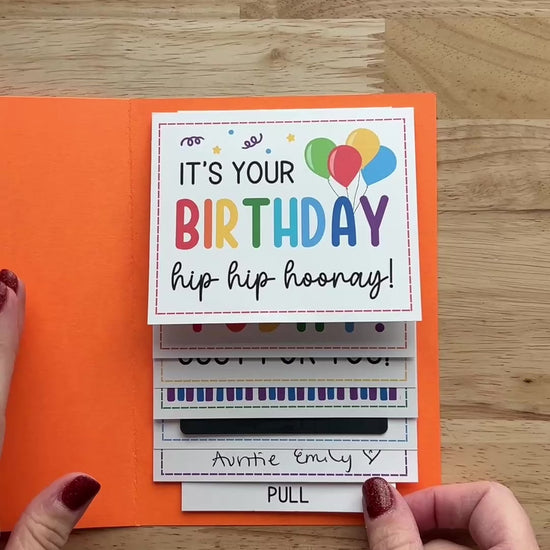 IT'S YOUR
BIRTHDAY
hip hip hooray!
TODAY!
JUST FOR YOU!
Auntie Emily ♡
PULL